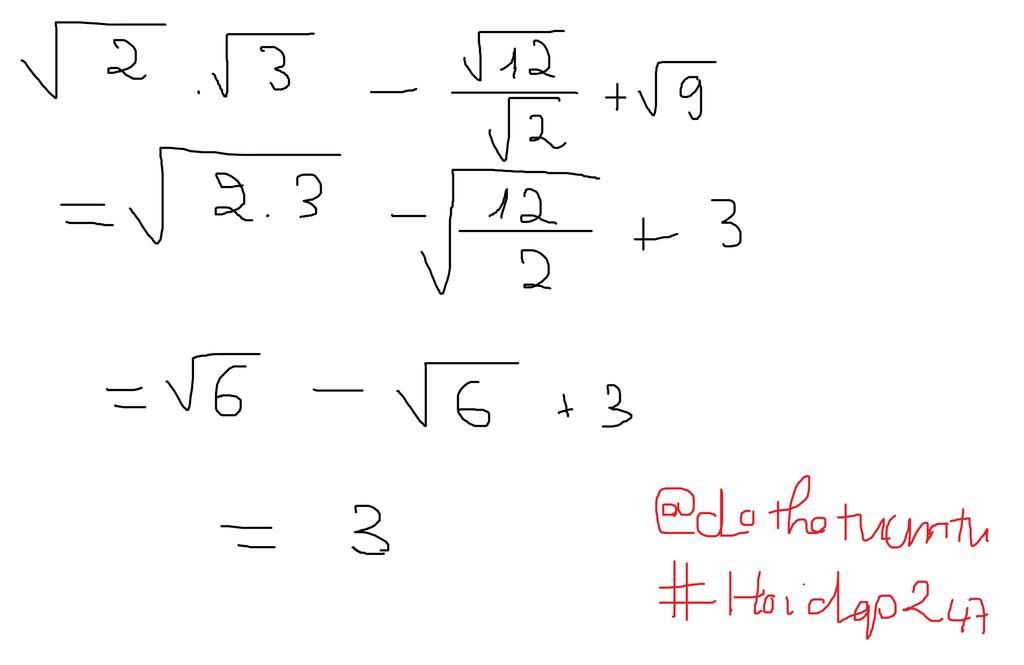 √2 . √3 - √12/√2 + √9
= √2.3 - √(12/2) + 3
= √6 - √6 + 3
= 3
@dothotucmtu
#Hoidap247